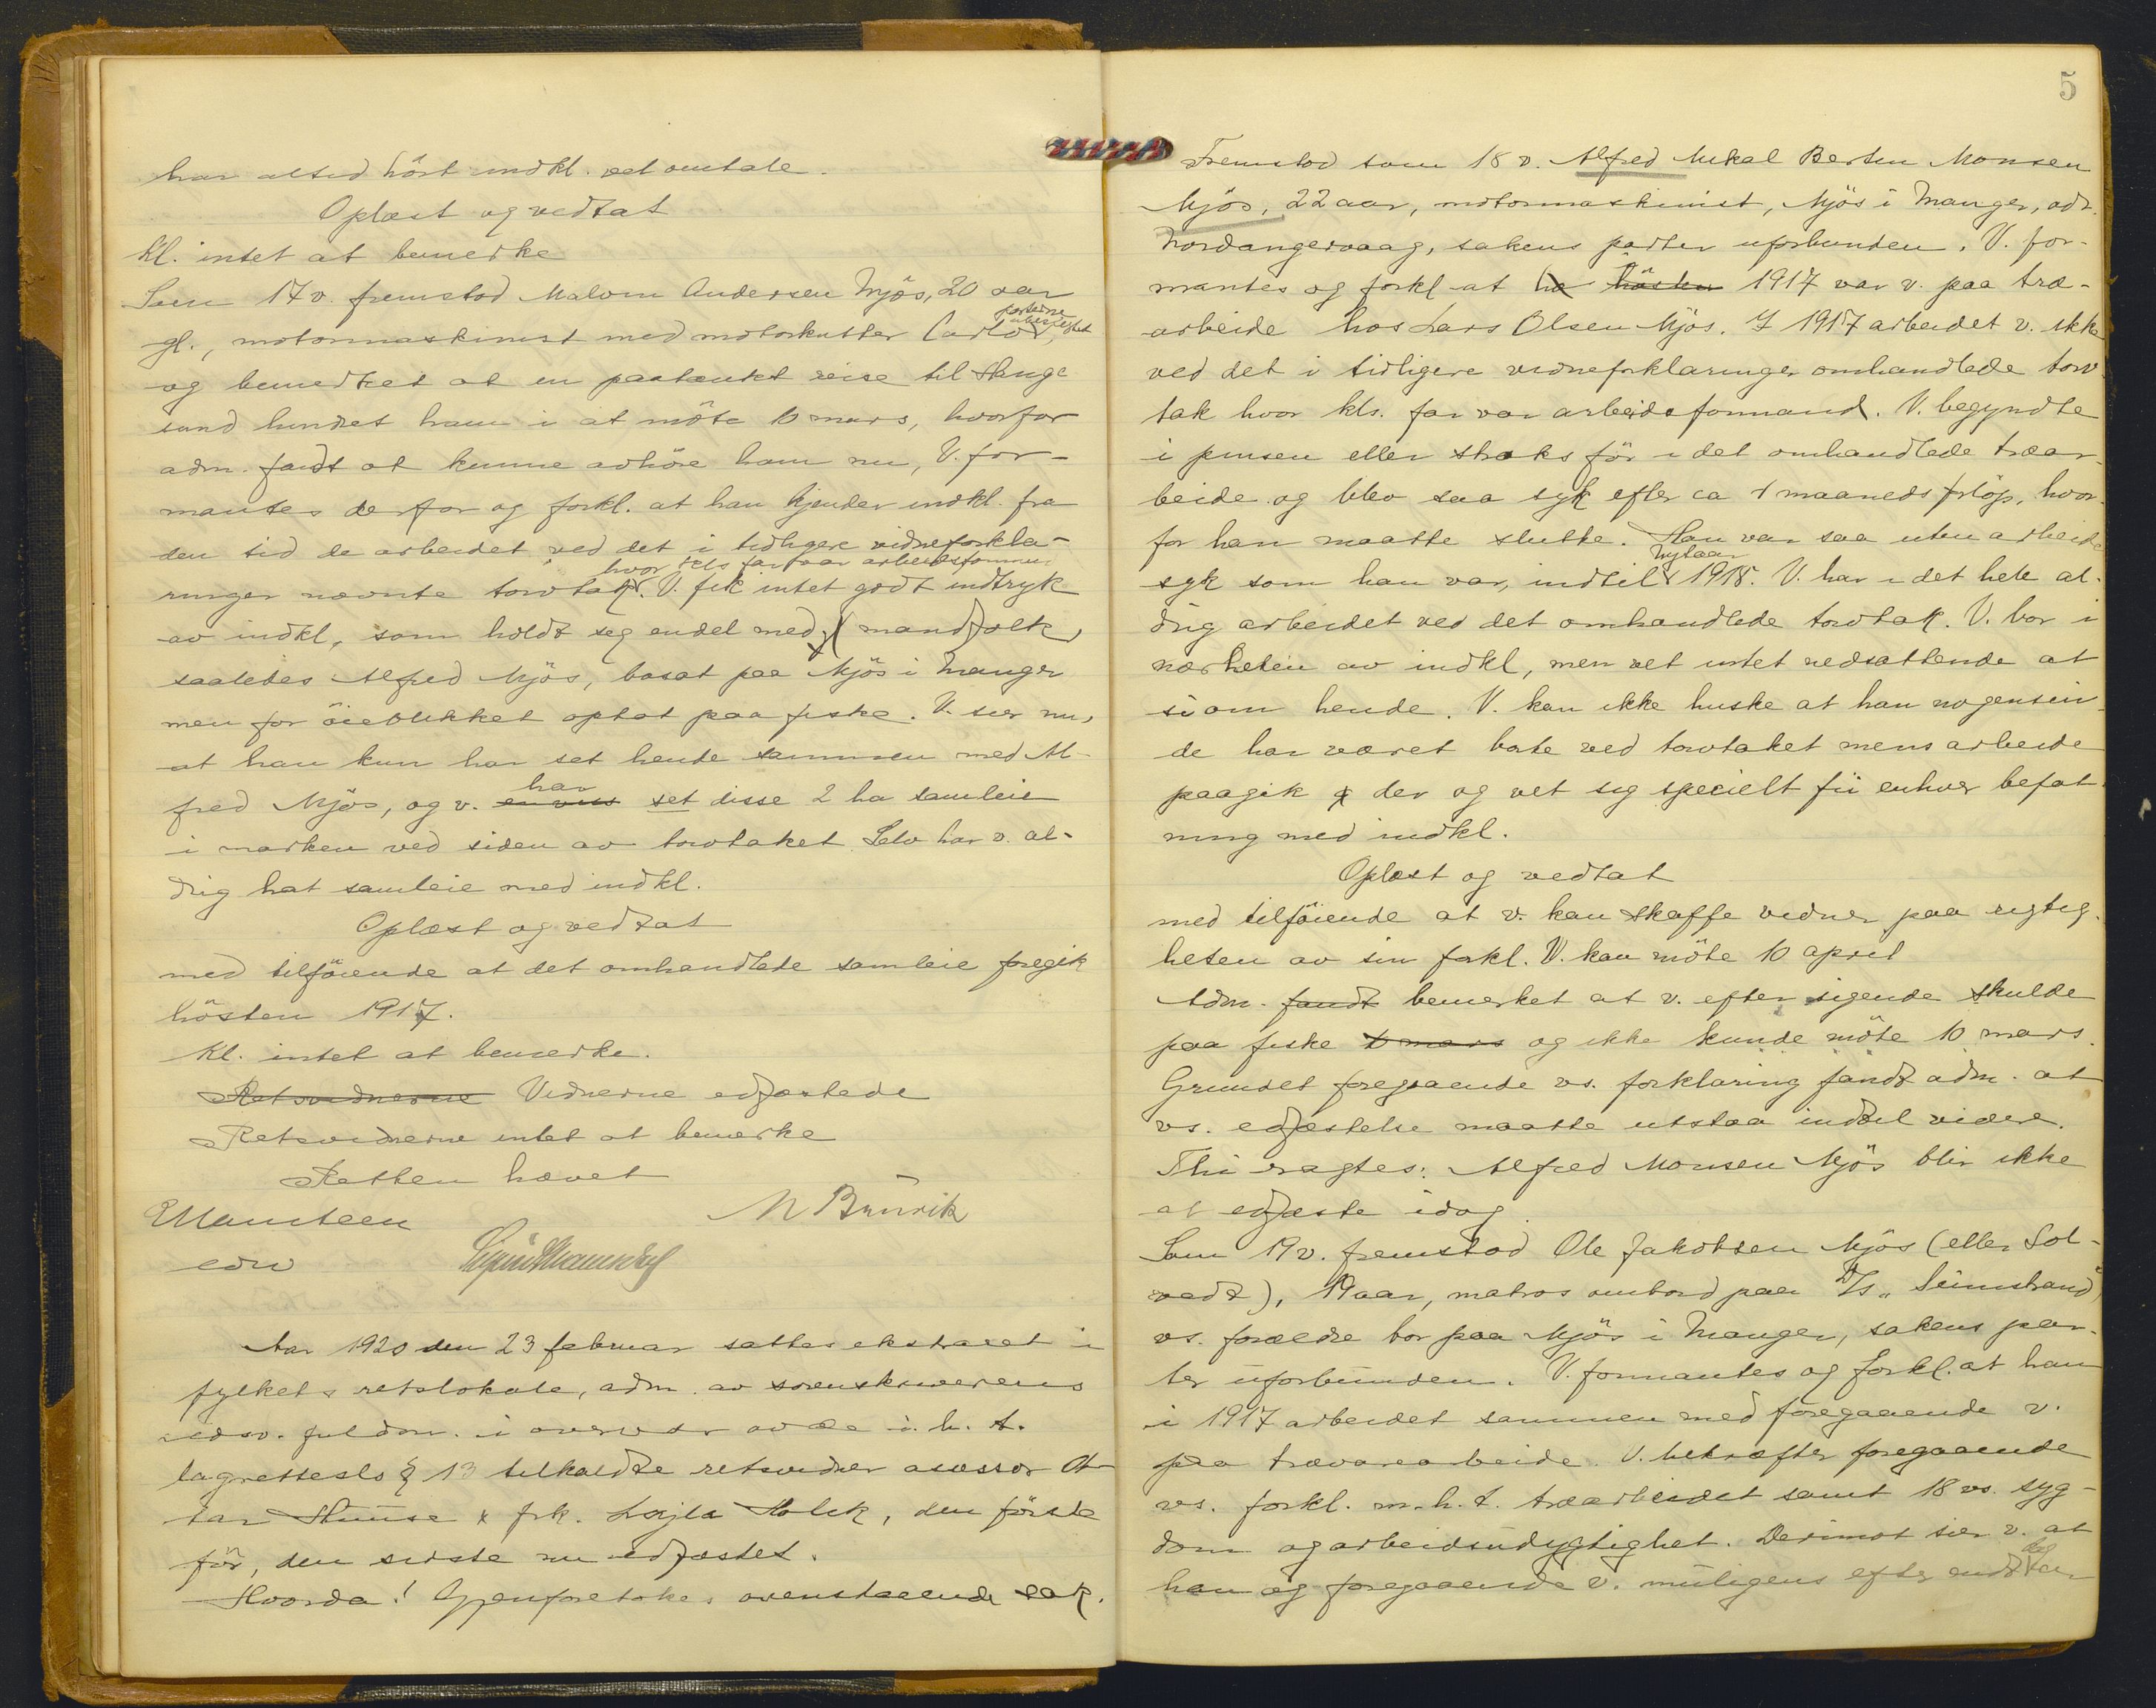 har altid hört indkl. vel omtale.
Oplæst og vedtat
Kl. intet at bemerke
Som 17 v. fremstod Malvin Andersen Mjös, 20 aar
gl., motormaskinist med motorkutter Carlo, parterne ubeslegtet
og bemerket at en paatænkt reise til
sund hindret ham i at möte 10 mars, hvorfor
adm. fandt at kunne avhöre ham nu, V. for-
mantes derfor og forkl. at han kjender indkl. fra
den tid de arbeidet ved det i tidligere vidneforkla-
hvor kls far var arbeidsforman
ringer nævnte torvtak. V. fik intet godt indtryk
av indkl, som holdt seg endel med mandfolk,
saaledes Alfred Mjös, bosat paa Mjös i Manger
men for öieblikket optat paa fiske. V. sier nu,
at han kun har set hende sammen med Al-
fred Mjös, og v. har set disse 2 ha samleie
i marken ved siden av torvtaket. Selv har v. al-
drig hat samleie med indkl.
Oplæst og vedtat
med tilföiende at det omhandlede samleie foregik
hösten 1917.
Kl. intet at bemerke.
Retsvidnerne Vidnerne edfæstede
Retsvidnerne intet at bemerke
Retten hævet
N Brünvik
edsv
Aar 1920 den 23 februar sattes ekstraret i
fylkets retslokale, adm. av sorenskriverens
edsv. fuldm. i overvær av de i. h. t.
lagretteslo § 13 tilkaldte retsvidner assessor Ot-
tar & frk. Lajla Holck, den förste
för, den sidste nu edfæstet.
Hvorda! Gjenforetokes ovenstaaende sak.
5
Fremstod som 18 v. Alfred Mikal Bertin Monsen
Mjös, 22 aar, motormaskinist, Mjös i Manger, adr.
Nordangervaag, sakens parter uforbunden. V. for-
mantes og forkl. at hösten 1917 var v. paa træ-
arbeide hos Lars Olsen Mjös. I 1917 arbeidet v. ikke
ved det i tidligere vidneforklaringer omhandlede torv
tak hvor kls. far var arbeidsformand. V. begyndte
i pinsen eller straks för i det omhandlede træar-
beide og blev saa syk efter ca 1 maaneds forlöp, hvor-
for han maatte slutte. Han var saa uten arbeide
syk som han var, indtil nytaar 1918. V. har i det hele al-
drig arbeidet ved det omhandlede torvtak. V. bor i
nærheten av indkl, men vet intet nedsættende at
si om hende. V. kan ikke huske at han nogensin-
de har været borte ved torvtaket mens arbeide
paagik der og vet sig specielt fri enhver befat-
ning med indkl.
Oplæst og vedtat
med tilföiende at v. kan skaffe vidner paa rigtig-
heten av sin forkl. V. kan möte 10 april
Adm. fandt bemerket at v. efter sigende skulde
paa fiske 10 mars og ikke kunde möte 10 mars.
Grundet foregaaende vs. forklaring fandt adm. at
vs. edfæstelse maatte utstaa indtil videre.
Thi eragtes: Alfred Monsen Mjös blir ikke
at edfæste idag.
Som 19 v. fremstod Ole Jakobsen Mjös (eller Sol-
vedt), 19 aar, matros ombord paa D/s "Seimstrand"
vs. forældre bor paa Mjös i Manger, sakens par-
ter uforbunden. V. formantes og forkl. at han
i 1917 arbeidet sammen med foregaaende v.
paa trævarearbeide. V. bekræfter foregaaende
vs. forkl. m. h. t. træarbeidet samt 18 vs. syg-
dom og arbeidsudygtighet. Derimot sier v. at
han og foregaaende v. muligens efter endt dag